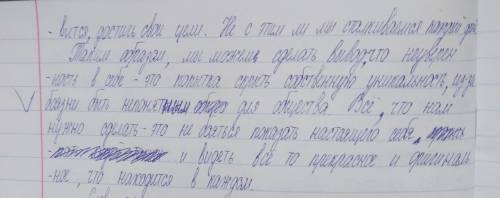 - вится, достичь свои цели. Не с тем ли мы сталкиваемся каждый
Таким образом, мы можем сделать вывод,что неуверен
-ность в себе - это попытка скрыть собственную уникальность, из-за
боязни быть непонятным для общества. Всё, что нам
нужно сделать - это не бояться показать настоящего себя,
и видеть всё то прекрасное и оригиналь
-ное, что находится в каждом.